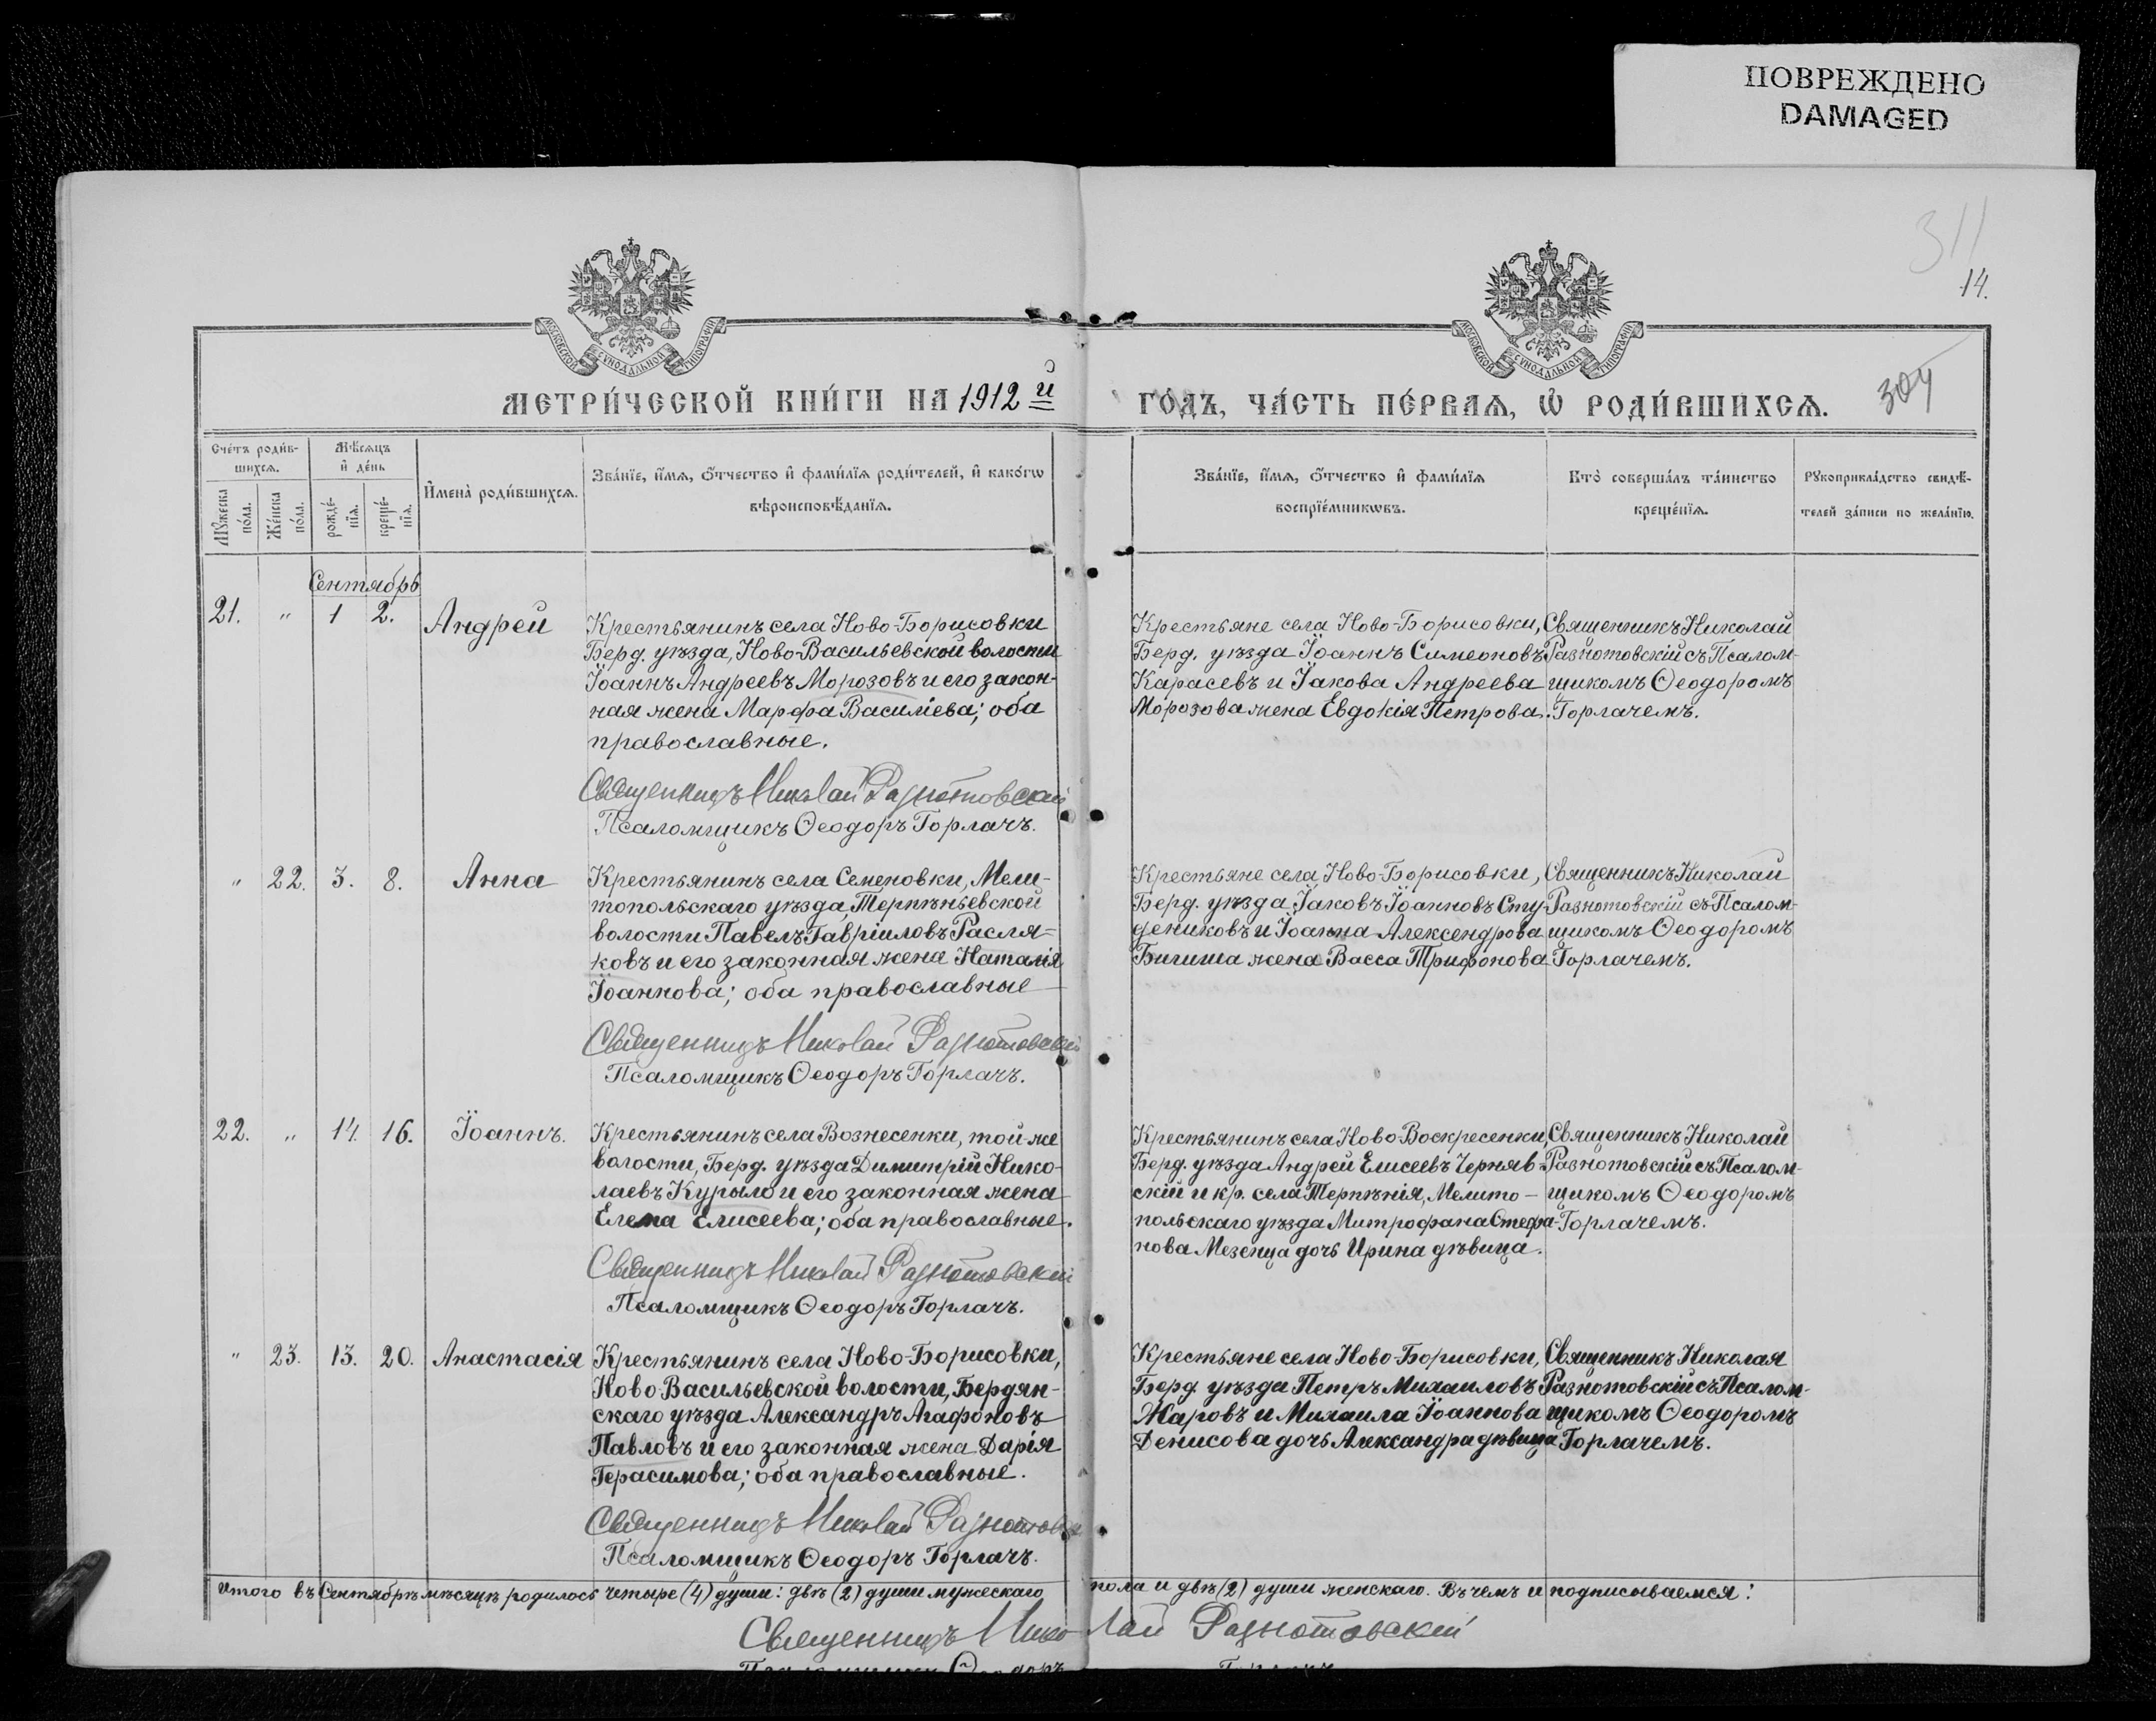 ПОВРЕЖДЕНО
DAMAGED
311
14.
МОСКОВСКОЙ СѴНОДАЛЬНОЙ ТИПОГРАФІИ
МОСКОВСКОЙ СѴНОДАЛЬНОЙ ТИПОГРАФІИ
МЕТРИ́ЧЕСКОЙ КНИ́ГИ НА 1912 й
ГО́ДЪ, ЧА́СТЬ ПЕ́РВАѦ, Ѡ҆ РОДИ́ВШИХСѦ.
304
Сче́тъ роди́в-
шихсѧ.
Мѣ́сѧцъ
и҆ де́нь
Мꙋ́жеска
по́ла.
Же́нска
по́ла.
рожде́-
нїѧ.
креще́-
нїѧ.
И҆мена̀ роди́вшихсѧ.
Зва́нїе, и҆́мѧ, ѻ҆́тчество и҆ фами́лїѧ роди́телей, и҆ како́гѡ
вѣроисповѣ́данїѧ.
Зва́нїе, и҆́мѧ, ѻ҆́тчество и҆ фами́лїѧ
воспрїе́мникѡвъ.
Кто̀ соверша́лъ та́инство
креще́нїѧ.
Рꙋкоприкла́дство свидѣ́-
телей за́писи по жела́нїю.
Сентябрь
21. " 1 2. Андрей
Крестьянинъ села Ново-Борисовки
Берд. уѣзда, Ново-Васильевской волости
Іоаннъ Андреевъ Морозовъ и его закон-
ная жена Марѳа Василіева; оба
православные.
Священникъ Николай Разнотовскій
Псаломщикъ Ѳеодоръ Горлачъ.
Крестьяне села Ново-Борисовки,
Берд. уѣзда Іоаннъ Симеоновъ
Карасевъ и Іакова Андреева
Морозова жена Евдокія Петрова.
Священникъ Николай
Разнотовскій съ Псалом-
щикомъ Ѳеодоромъ
Горлачемъ.
" 22. 3. 8. Анна
Крестьянинъ села Семеновки, Мели-
топольскаго уѣзда, Терпѣньевской
волости Павелъ Гавріиловъ Расля-
ковъ и его законная жена Наталія
Іоаннова; оба православные
Священникъ Николай Разнотовскій
Псаломщикъ Ѳеодоръ Горлачъ.
Крестьяне села Ново-Борисовки,
Берд. уѣзда Іаковъ Іоанновъ Сту-
дениковъ и Іоанна Александрова
Бигиша жена Васса Трифонова
Священникъ Николай
Разнотовскій съ Псалом-
щикомъ Ѳеодоромъ
Горлачемъ.
22. " 14. 16. Іоаннъ.
Крестьянинъ села Вознесенки, той-же
волости, Берд. уѣзда Димитрій Нико-
лаевъ Курыло и его законная жена
Елена Елисеева; оба православные.
Священникъ Николай Разнотовскій
Псаломщикъ Ѳеодоръ Горлачъ.
Крестьянинъ села Ново-Воскресенки,
Берд. уѣзда Андрей Елисеевъ Черняв-
скій и кр. села Терпѣнія, Мелито-
польскаго уѣзда Митрофана Стефа-
нова Мезенца дочь Ирина дѣвица.
Священникъ Николай
Разнотовскій съ Псалом-
щикомъ Ѳеодоромъ
Горлачемъ.
" 23. 13. 20. Анастасія
Крестьянинъ села Ново-Борисовки,
Ново-Васильевской волости, Бердян-
скаго уѣзда Александръ Агафоновъ
Павловъ и его законная жена Дарія
Герасимова; оба православные.
Священникъ Николай Разнотовскій
Псаломщикъ Ѳеодоръ Горлачъ.
Крестьяне села Ново-Борисовки,
Берд. уѣзда Петръ Михаиловъ
Жаровъ и Михаила Іоаннова
Денисова дочь Александра дѣвица
Священникъ Николая
Разнотовскій съ Псалом-
щикомъ Ѳеодоромъ
Горлачемъ.
Итого въ Сентябрѣ мѣсяцѣ родилось четыре (4) души: двѣ (2) души мужескаго пола и двѣ (2) души женскаго. Въ чемъ и подписываемся:
Священникъ Николай Разнотовскій
Псаломщикъ Ѳеодоръ Горлачъ